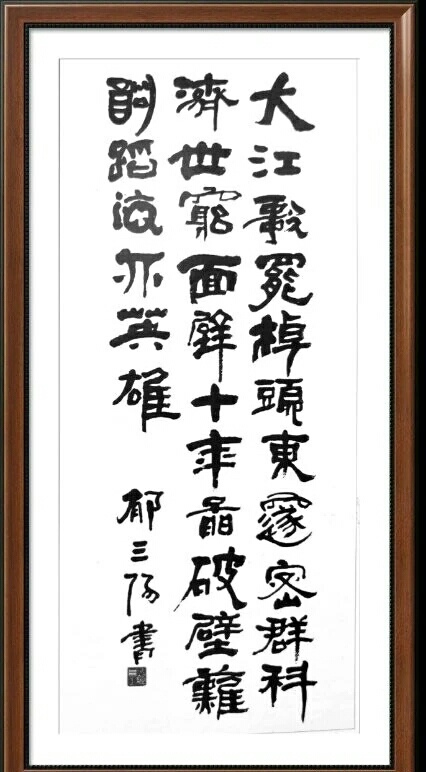 大江歌罷棹頭東邃密群科
濟世窮面壁十年啚破壁難
酬蹈海亦英雄
郁三書